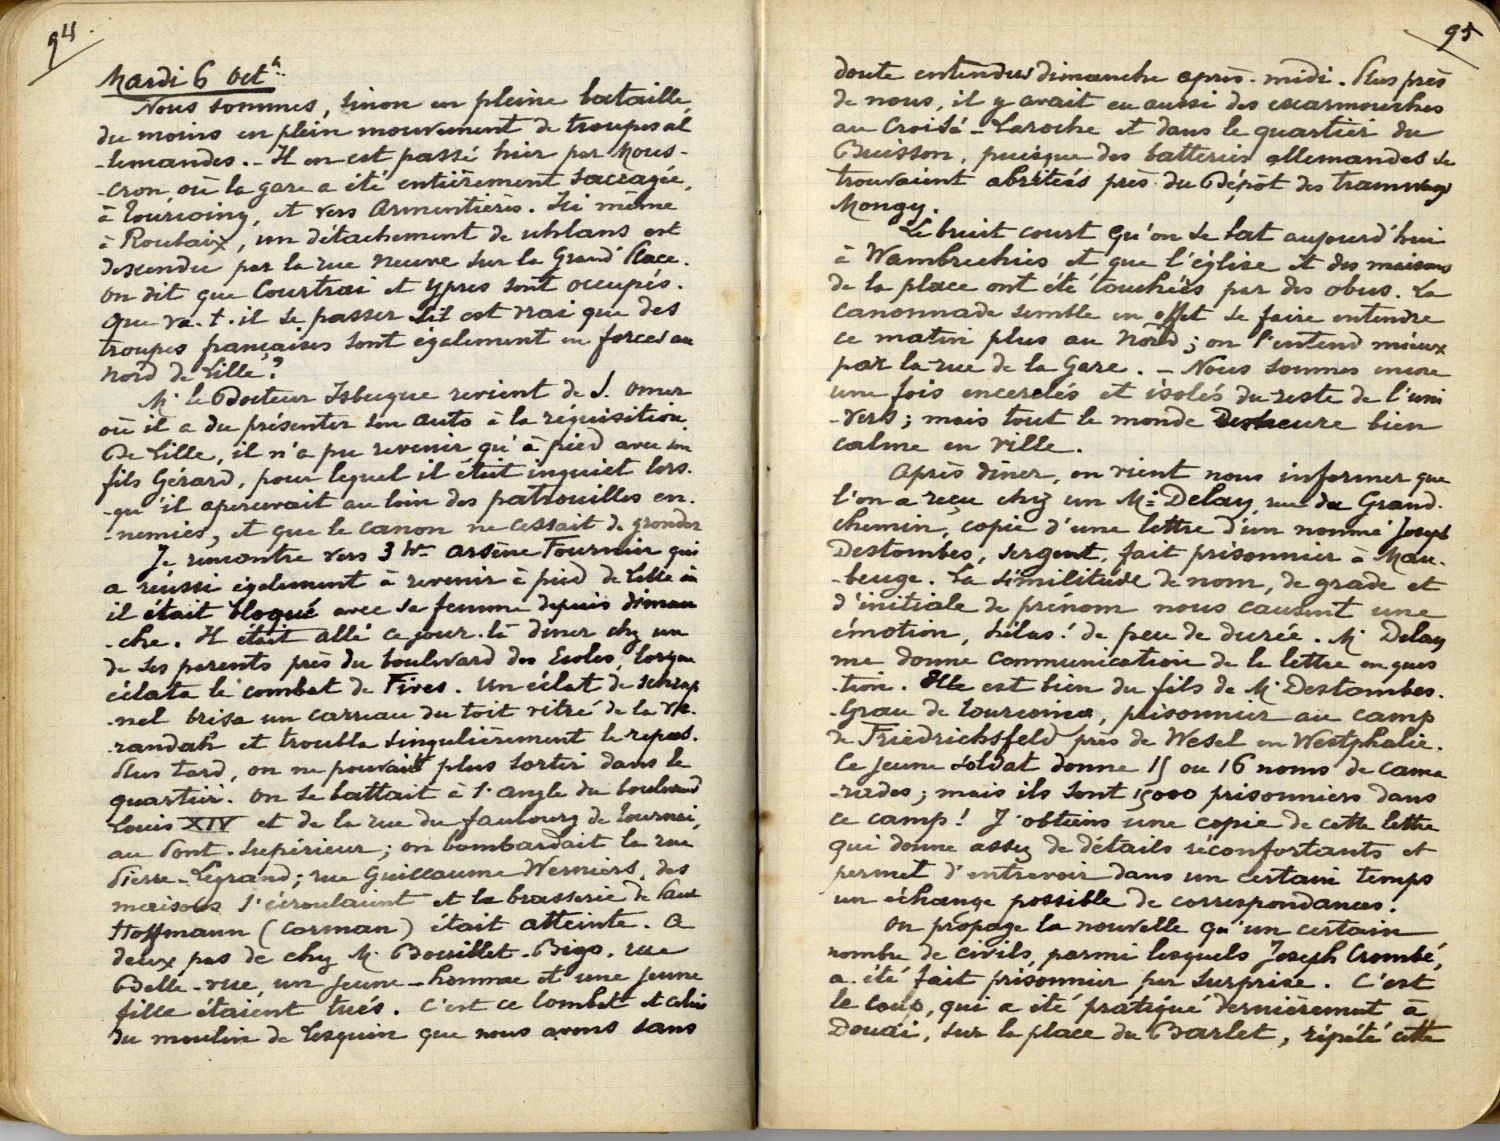 94.
Mardi 6 Oct.
Nous sommes, sinon en pleine bataille,
du moins en plein mouvement de troupes al
-lemandes. - Il en est passé hier par Mous-
-cron, où la gare a été entièrement saccagée,
à Tourcoing, et vers Armentières. Ici même
à Roubaix, un détachement de uhlans est
descendu par la rue Neuve sur la Grand' Place.
On dit que Courtrai et Ypres sont occupés.
Que va-t-il se passer s'il est vrai que des
troupes françaises sont également en forces au
Nord de Lille?
Mr le Docteur Isbecque revient de S. Omer
où il a du présenter son auto à la réquisition.
De Lille, il n'a pu revenir qu'à pied avec son
fils Gérard, pour lequel il était inquiet lors-
-qu'il apercevait au loin des patrouilles en-
-nemies, et que le canon ne cessait de gronder
Je rencontre vers 3 h. Arsène Fournier qui
a réussi également à revenir à pied de Lille où
il était bloqué avec sa femme depuis diman
-che. Il était allé ce jour-là dîner chez un
de ses parents près du boulevard des Ecoles, lorsque
éclata le combat de Fives. Un éclat de schrap
-nel brisa un carreau du toit vitré de la vé-
-randah et troubla singulièrement le repas.
Plus tard, on ne pouvait plus sortir dans le
quartier. On se battait à l'angle du boulevard
Louis XIV et de la rue du faubourg de Tournai,
au Pont-Supérieur; on bombardait la rue
Pierre-Legrand; rue Guillaume Werniers, des
maisons s'écroulaient et la brasserie de Paul
Hoffmann (Carman) était atteinte. A
deux pas de chez M. Bouillet-Bigo, rue
Belle-vue, un jeune-homme et une jeune
fille étaient tués. C'est ce combat et celui
du moulin de Lesquin que nous avons sans
95
doute entendus dimanche après-midi. Plus près
de nous, il y avait eu aussi des escarmouches
au Croisé-Laroche et dans le quartier du
Buisson, puisque des batteries allemandes se
trouvaient abritées près du Dépôt des tramways
Mongy.
Le bruit court qu'on se bat aujourd'hui
à Wambrechies et que l'église et des maisons
de la place ont été touchées par des obus. La
canonnade semble en effet se faire entendre
ce matin plus au Nord; on l'entend mieux
par la rue de la Gare. - Nous sommes encore
une fois encerclés et isolés du reste de l'uni
-vers; mais tout le monde demeure bien
calme en ville.
Après dîner, on vient nous informer que
l'on a reçu chez un Mr Delay, rue du Grand-
chemin, copie d'une lettre d'un nommé Joseph
Destombes, sergent, fait prisonnier à Mau-
-beuge. La similitude de nom, de grade et
d'initiale de prénom nous causent une
émotion, hélas! de peu de durée. M. Delay
me donne communication de la lettre en ques
-tion. Elle est bien du fils de M. Destombes-
-Grau de Tourcoing, prisonnier au camp
de Friedrichsfeld près de Wesel en Westphalie.
Ce jeune soldat donne 15 ou 16 noms de cama
-rades; mais ils sont 15000 prisonniers dans
ce camp! J'obtiens une copie de cette lettre
qui donne assez de détails réconfortants et
permet d'entrevoir dans un certain temps
un échange possible de correspondances.
On propage la nouvelle qu'un certain
nombre de civils, parmi lesquels Joseph Crombé,
a été fait prisonnier par surprise. C'est
le coup, qui a été pratiqué dernièrement à
Douai, sur la place du Barlet, répété cette